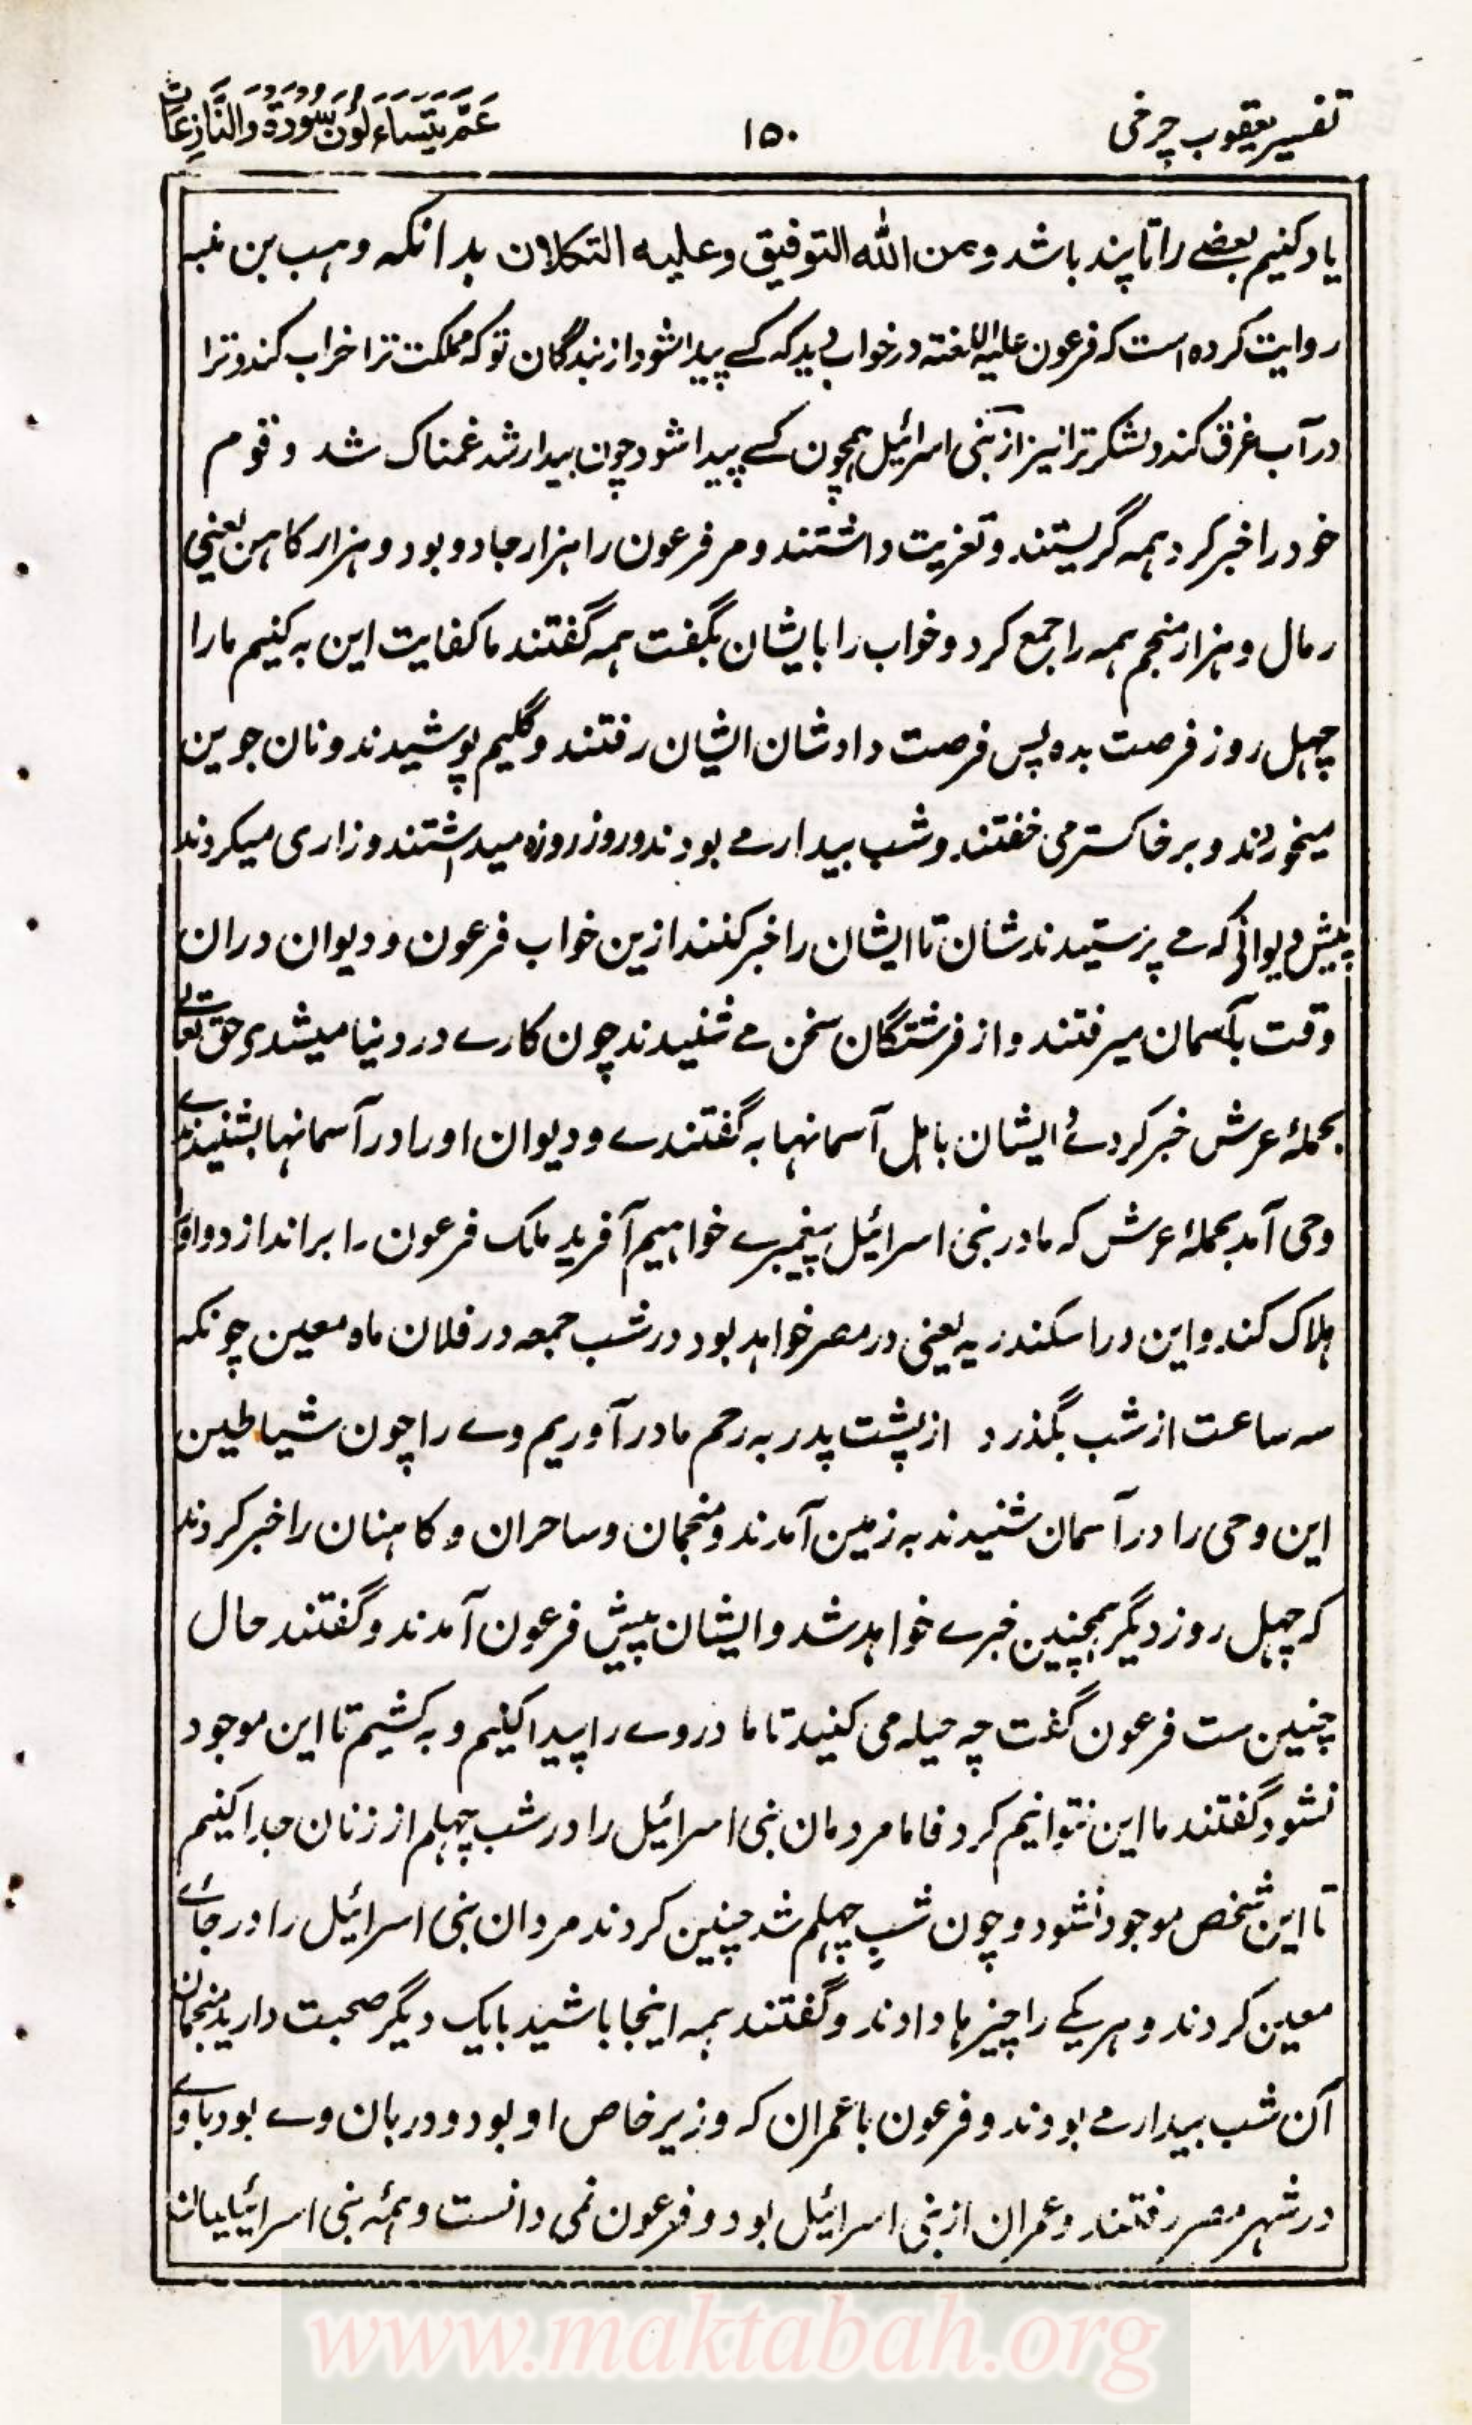 تفسیر یعقوب چرخی ۱۵۰ عَمَّ یَتَسَاءَلُوْنَ سُوْرَةُ وَالنَّازِعَاتِ
یاد کنیم بعضے را تا پند باشد و من الله التوفیق و علیه التکلان بدانکه وهب بن منبه
روایت کرده است که فرعون علیه اللغته در خواب دید که کسے پیدا شود از بندگان تو که مملکت ترا خراب کند و ترا
در آب غرق کند و لشکر ترا نیز از بنی اسرائیل همچون کسے پیدا شود چون بیدار شد غمناک شد و قوم
خود را خبر کرد همه گریستند و تعزیت داشتند و مر فرعون را هزار جادو بود و هزار کاهن یعنی
رمال و هزار منجم همه را جمع کرد و خواب را بایشان بگفت همه گفتند ما کفایت این به کنیم ما را
چهل روز فرصت بده پس فرصت دادشان ایشان رفتند و گلیم پوشیدند و نان جوین
میخوردند و بر خاکستر می خفتند و شب بیدار مے بودند و روز روزه میداشتند و زاری میکردند
پیش دیوانی که مے پرستیدند شان تا ایشان را خبر کنند ازین خواب فرعون و دیوان دران
وقت بآسمان میرفتند و از فرشتگان سخن مے شنیدند چون کارے در دنیا میشدی حق تعالے
بحملۂ عرش خبر کردے ایشان باهل آسمانها به گفتندے و دیوان او را در آسمانها بشنیدندے
وحی آمد بحملۂ عرش که ما در بنی اسرائیل پیغمبرے خواهیم آفرید ملک فرعون را براندازد و او را
هلاک کند و این در اسکندریه یعنی در مصر خواهد بود در شب جمعه در فلان ماه معین چونکه
سه ساعت از شب بگذرد از پشت پدر به رحم مادر آوریم وے را چون شیاطین
این وحی را در آسمان شنیدند به زمین آمدند و منجمان و ساحران و کاهنان را خبر کردند
که چهل روز دیگر همچنین خبرے خواهد شد و ایشان پیش فرعون آمدند و گفتند حال
چنین ست فرعون گفت چه حیله می کنید تا مادر وے را پیدا کنیم و به کشیم تا این موجود
نشود گفتند ما این نتوانیم کرد فاما مردمان بنی اسرائیل را در شب چهلم از زنان جدا کنیم
تا این شخص موجود نشود و چون شبِ چهلم شد چنین کردند مردان بنی اسرائیل را در جاے
معین کردند و هر یکے را چیزها دادند و گفتند همه اینجا باشید بایک دیگر صحبت دارید منجمان
آن شب بیدار مے بودند و فرعون با عمران که وزیر خاص او بود و دربان وے بود با وے
در شهر مصر رفتند و عمران از بنی اسرائیل بود و فرعون نمی دانست و همۂ بنی اسرائیلیان
www.maktabah.org